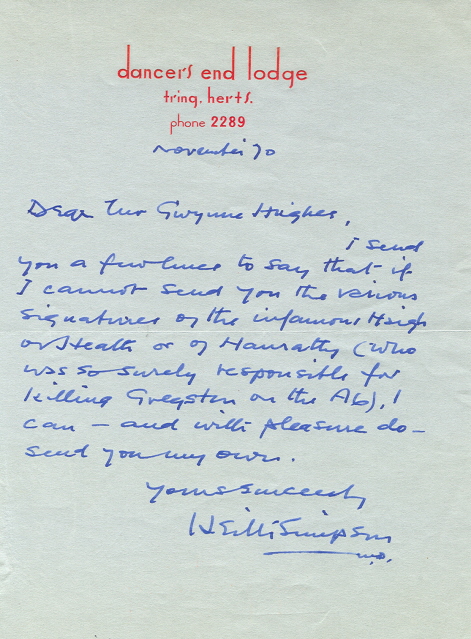 dancer's end lodge
tring. herts.
phone 2289
November 70
Dear Mr Gwynne Hughes,
I send
you a few lines to say that if
I cannot send you the various
signatures of the infamous Haigh
or Heath or of Hanratty (who
was so surely responsible for
killing Gregsten on the A6), I
can – and with pleasure do –
send you my own.
Yours sincerely
Keith Simpson
M.D.